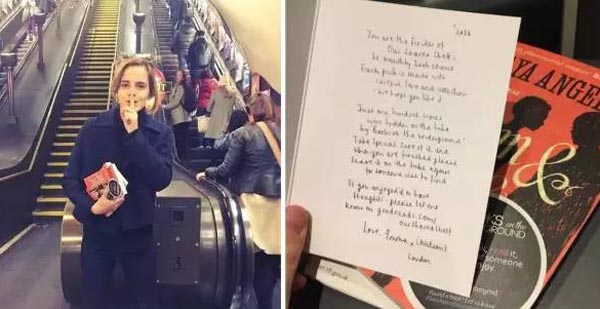 2016
You are the finder of
Our Shared Shelf's
monthly book choice
Each pick is made with
care and
we hope you like it
Just one hundred copies
were hidden on the tube
by Books on the underground
Take special care of it and
when you are finished please
leave it on the tube again
for someone else to find
If you enjoyed it or have
thoughts please let me
know on goodreads.com/
oursharedshelf
Love, Emma (Watson)
London
YA ANGE
m &
KS on the
GROUND
it,
someone
joy.
3